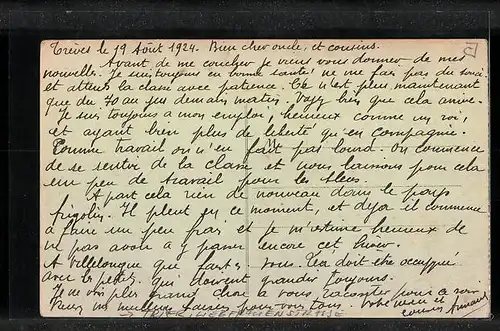 Trèves le 19 Août 1924. Bien cher oncle, et cousins.
Avant de me coucher je viens vous donner de mes
nouvelles. Je suis toujours en bonne santé ne me fais pas du souci
et attens la classe avec patience. Ce n'est plus maintenant
que du 70 au jus demain matin. Voyez bien que cela arrive.
Je suis toujours a mon emploi, heureux comme un roi,
et ayant bien plus de liberté qu'en compagnie.
Comme travail on n'en fait pas lourd. On commence
de se sentir de la classe et nous laissons pour cela
un peu de travail pour les bleus.
A part cela rien de nouveau dans le pays
frigolin. Il pleut en ce moment, et deja il commence
a faire un peu frais et je m'estime heureux de
ne pas avoir a y passer encore cet hiver.
A Villelongue que faites vous. Tea doit etre occupée
avec les petits qui doivent grandir toujours.
Je ne vois plus grand chose a vous raconter pour ce soir.
Recevez mes meilleurs baisers pour vous tous. Votre neveu et
cousin Armand